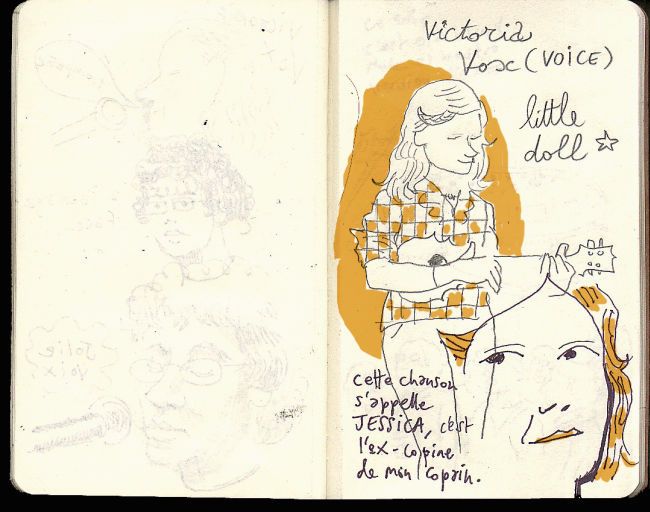 Jolie
voix
Victoria
Vox (VOICE)
little
doll ☆
cette chanson
s'appelle
JESSICA, c'est
l'ex-copine
de mon copain.